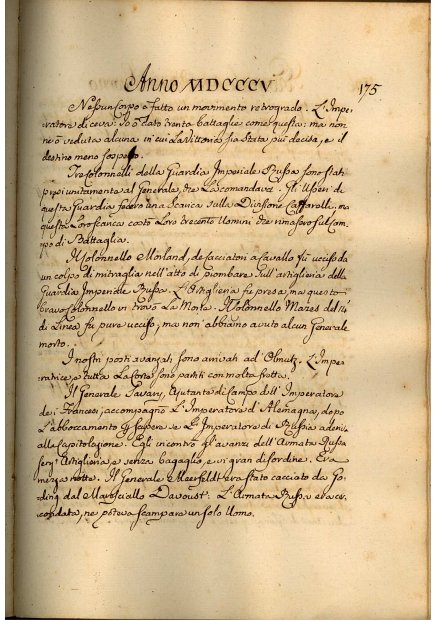 Anno MDCCCV
175
Nessun corpo à fatto un movimento retrogrado. L'Impe-
ratore diceva: Io ò dato trenta battaglie come questa: ma non
ne ò veduta alcuna in cui la Vittoria sia stata più decisa, e il
destino meno sospeso.
Tre Colonnelli della Guardia Imperiale Russa sono stati
presi unitamente al Generale, che la comandava. Gl'Usseri di
questa Guardia fecero una Scarica sulla Divisione Caffarelli: ma
questa Loro scarica costò Loro trecento Uomini, che rimasero sul Cam-
po di Battaglia.
Il Colonnello Morland, de' Cacciatori a Cavallo fù ucciso da
un colpo di mitraglia nell'atto di piombare sull'artiglieria della
Guardia Imperiale Russa. L'Artiglieria fu presa, ma questo
bravo Colonnello vi trovò La Morte. Il Colonnello Mazes del
di Linea fu pure ucciso; ma non abbiamo avuto alcun Generale
morto.
I nostri posti avanzati sono arrivati ad Olmutz. L'Impe-
ratrice, e tutta La Corte sono partiti con molta fretta.
Il Generale Savary, Ajutante di Campo dell'Imperatore
de' Francesi, accompagnò L'Imperatore d'Alemagna, dopo
L'abboccamento se L'Imperatore di Russia aderiva
alla Capitolazione. Egli incontrò gl'avanzi dell'Armata Russa
senz'Artiglieria, e senza bagaglio, e in gran disordine. Era
mezza notte. Il Generale Meerfeldt era stato cacciato da Go-
ding dal Maresciallo Davoust. L'Armata Russa era cir-
condata, ne poteva scampare un solo Uomo.